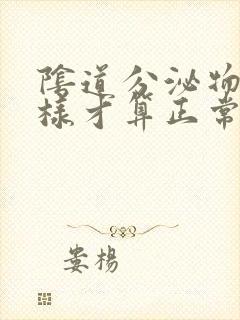 陰道分泌物
樣才算正常
婁楊